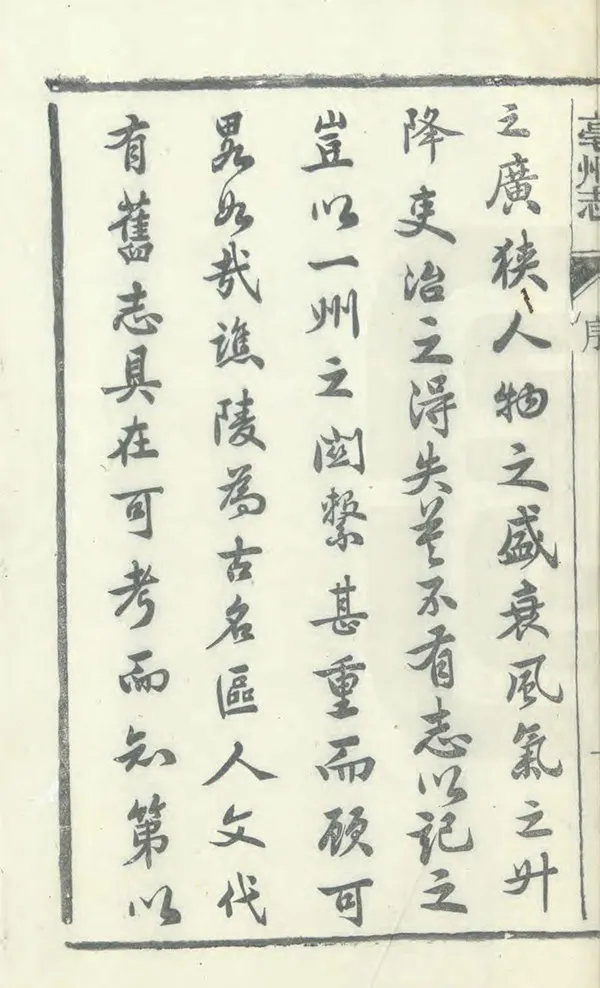 亳州志
序
之廣狹人物之盛衰風氣之升
降吏治之得失莫不有志以記之
豈以一州之関繫甚重而顧可
畧如哉譙陵為古名區人文代
有舊志具在可考而知第以